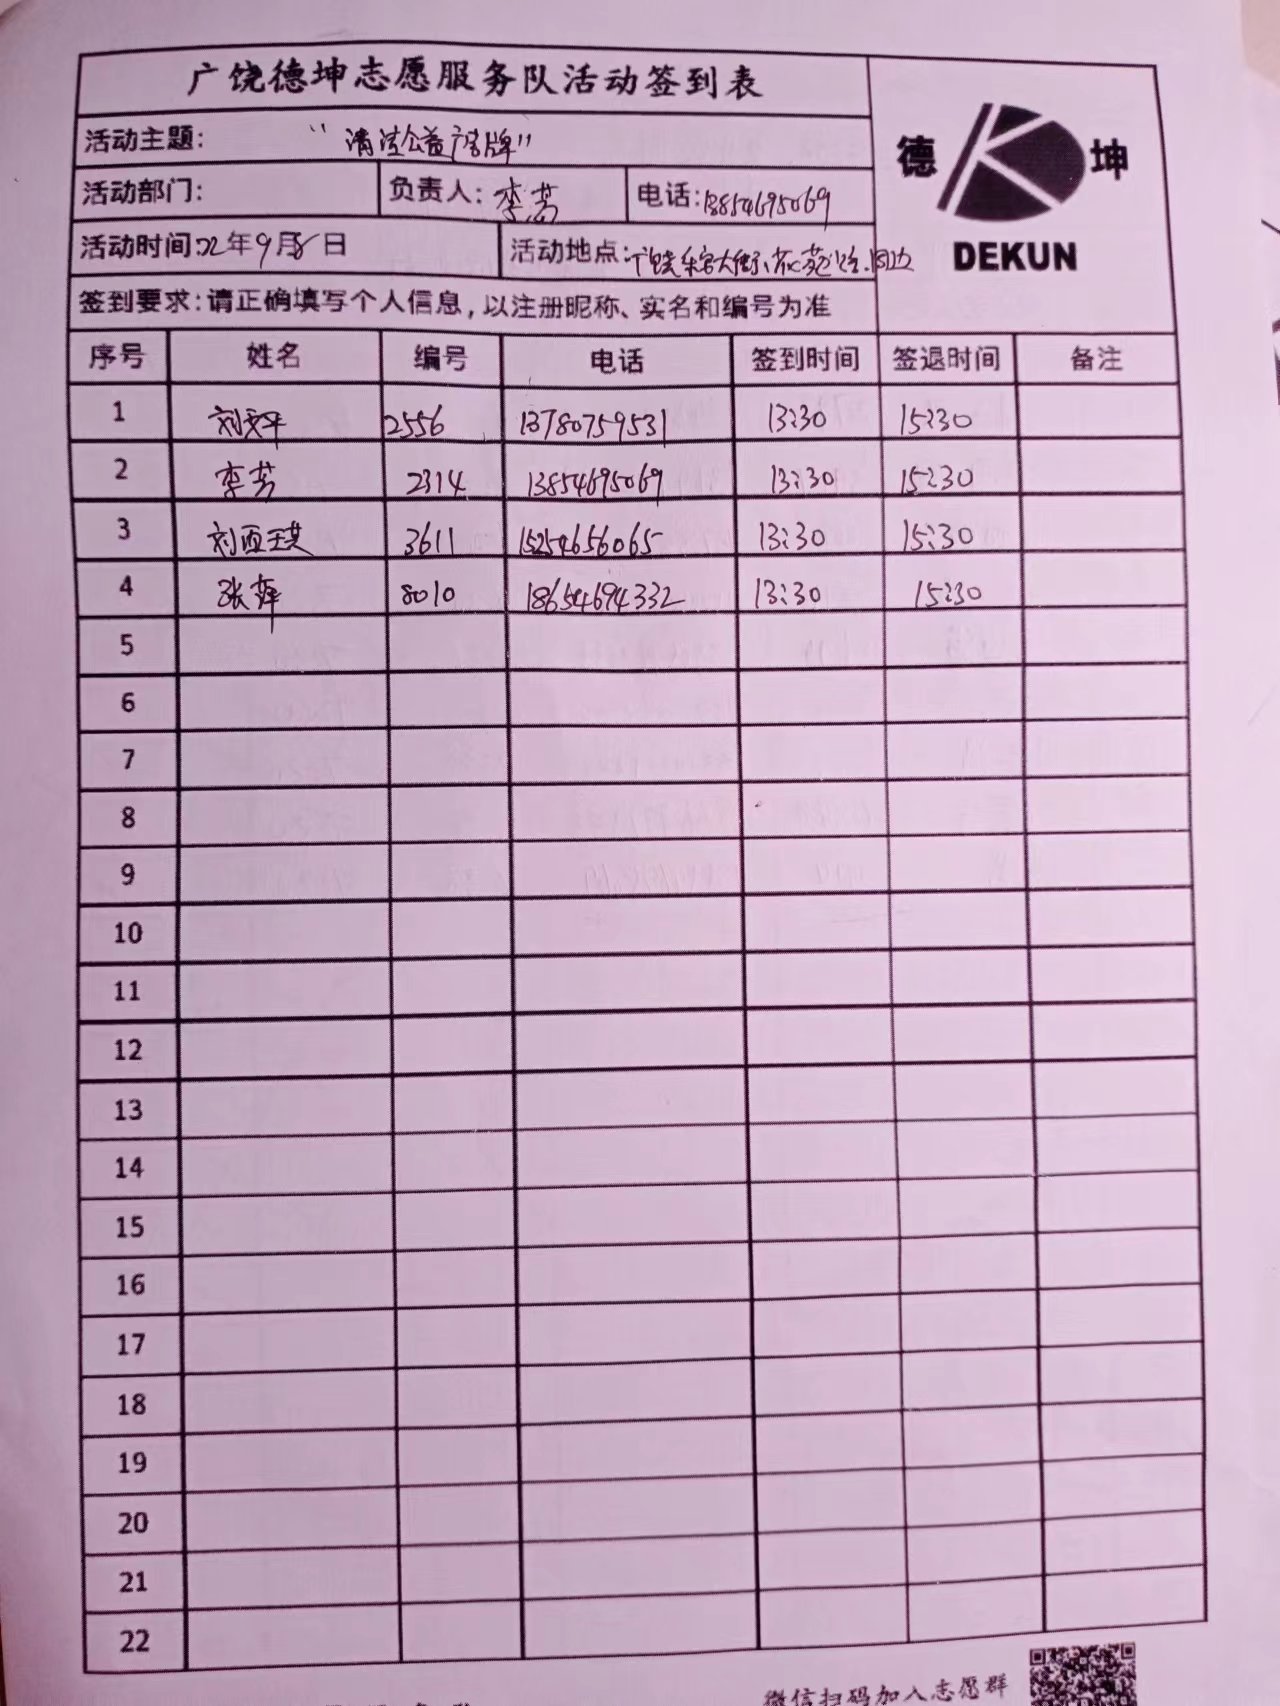 广饶德坤志愿服务队活动签到表
活动主题： “清洁公益广告牌”
德 坤
DEKUN
活动部门： 负责人：李芳 电话：13854695069
活动时间：22年9月8日 活动地点：广饶乐安大街、花苑路.周边
签到要求：请正确填写个人信息，以注册昵称、实名和编号为准
序号 姓名 编号 电话 签到时间 签退时间 备注
1 刘文平 2556 13780759531 13:30 15:30
2 李芳 2314 13854695069 13:30 15:30
3 刘亚琪 3611 15254656065 13:30 15:30
4 张萍 8010 18654694332 13:30 15:30
5
6
7
8
9
10
11
12
13
14
15
16
17
18
19
20
21
22
微信扫码加入志愿群